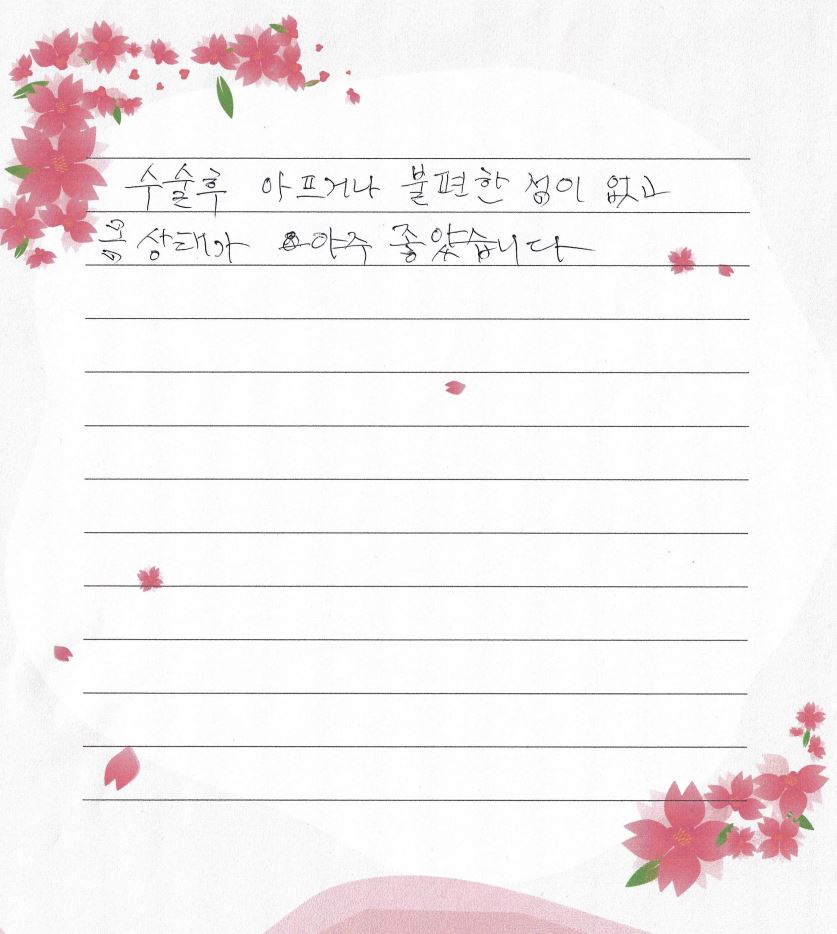 수술후 아프거나 불편한 점이 없고
상태가 아주 좋았습니다